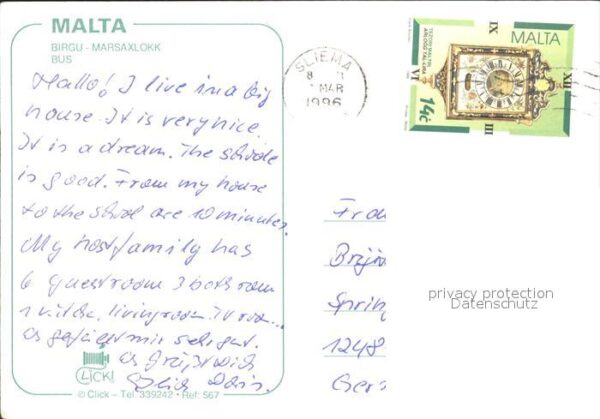 MALTA
BIRGU - MARSAXLOKK
BUS
Hallo! I live in a big
house. It is very nice.
It is a dream. The shole
is good. From my house
to the shool are 10 minutes.
My hostfamily has
6 guestroom 3 bathroom
1 kitche, livingroom. TV room...
es gefällt mir sehr gut.
es grüßt dich
CLICK!
© Click - Tel. 339242 - Ref: 567
SLIEMA
8
MAR
1996
TEŻORI MALTIN
ARLOĠĠ TAL-LIRA
14c
MALTA
IX
XII
VI
III
Frau
Spring
1248
Ger
privacy protection
Datenschutz